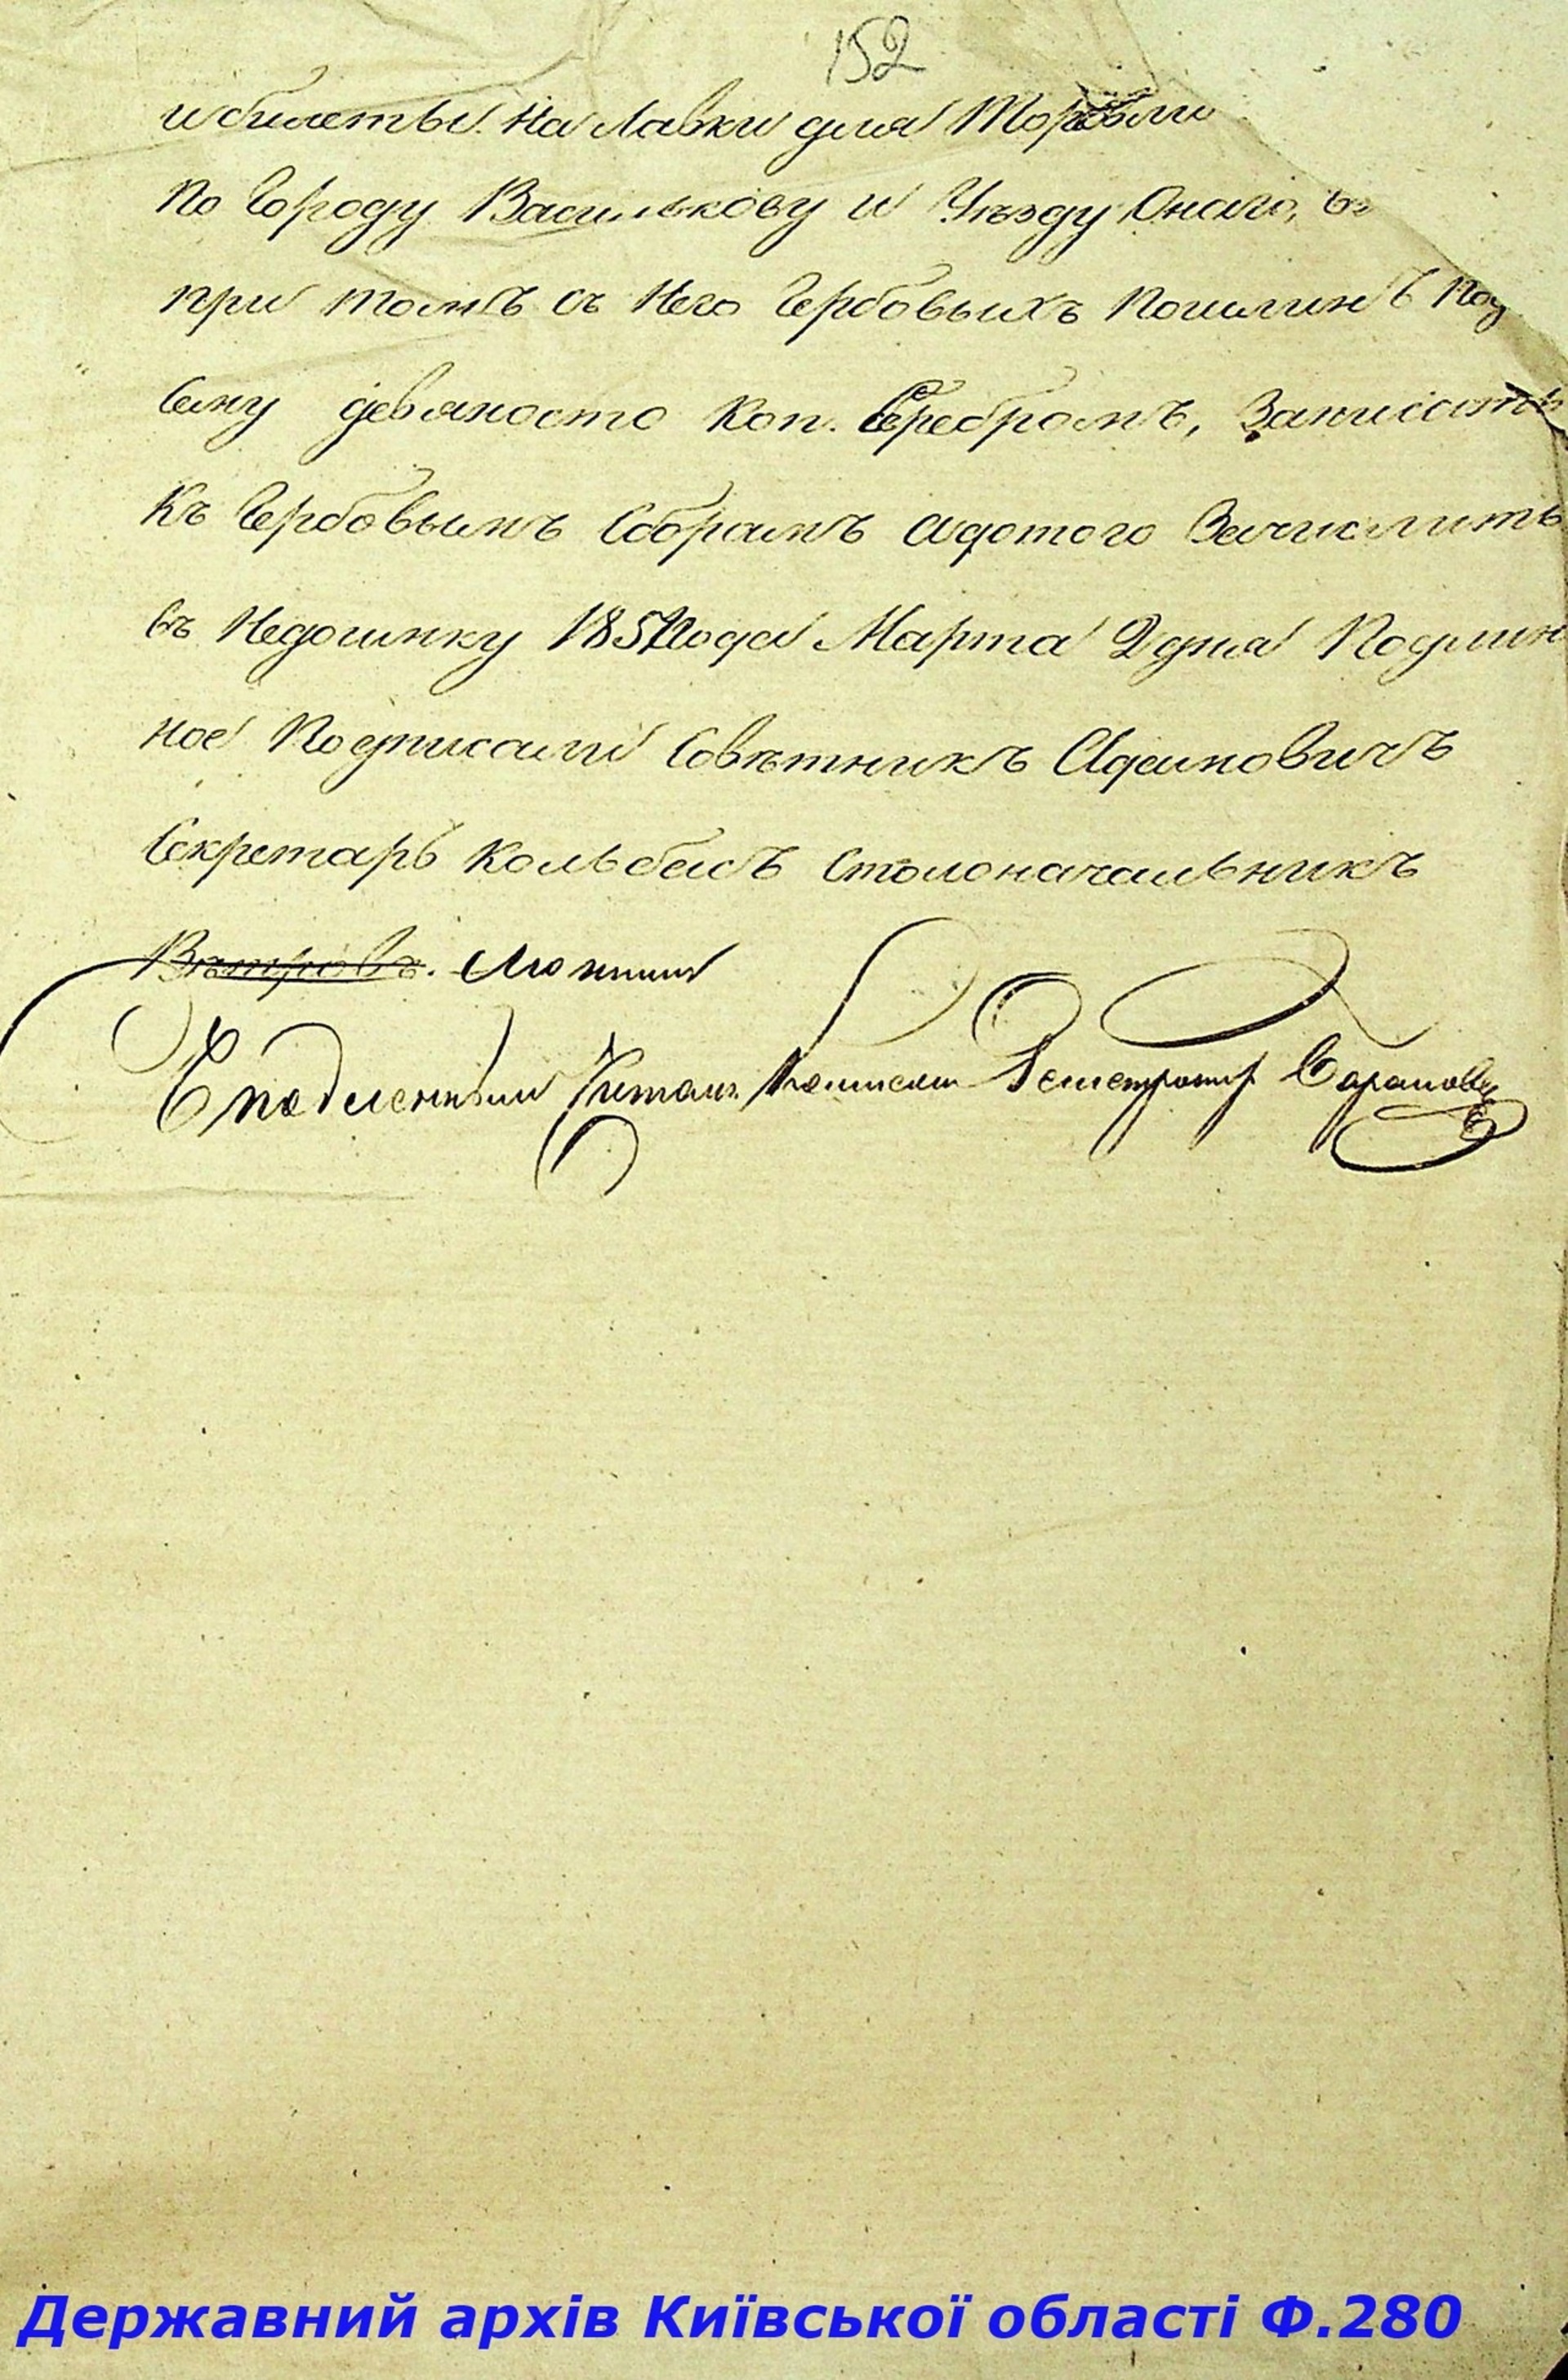 152
и билеты на Лавки для Торговли
По Городу Василькову и Уѣзду Онаго, въ
при томъ съ Него Гербовыхъ Пошлинъ Под
Сему девяносто Коп. Серебромъ, Записать
Къ Гербовымъ Сборамъ а до того Зачислить
въ Недоимку 1851 года Марта 2 дня Подлин
ное Подписали Совѣтникъ Адамовичъ
Секретарь Кольбасъ Столоначальникъ
Вѣтровъ.
подленнымъ Читалъ Регистраторъ
Державний архів Київської області Ф.280